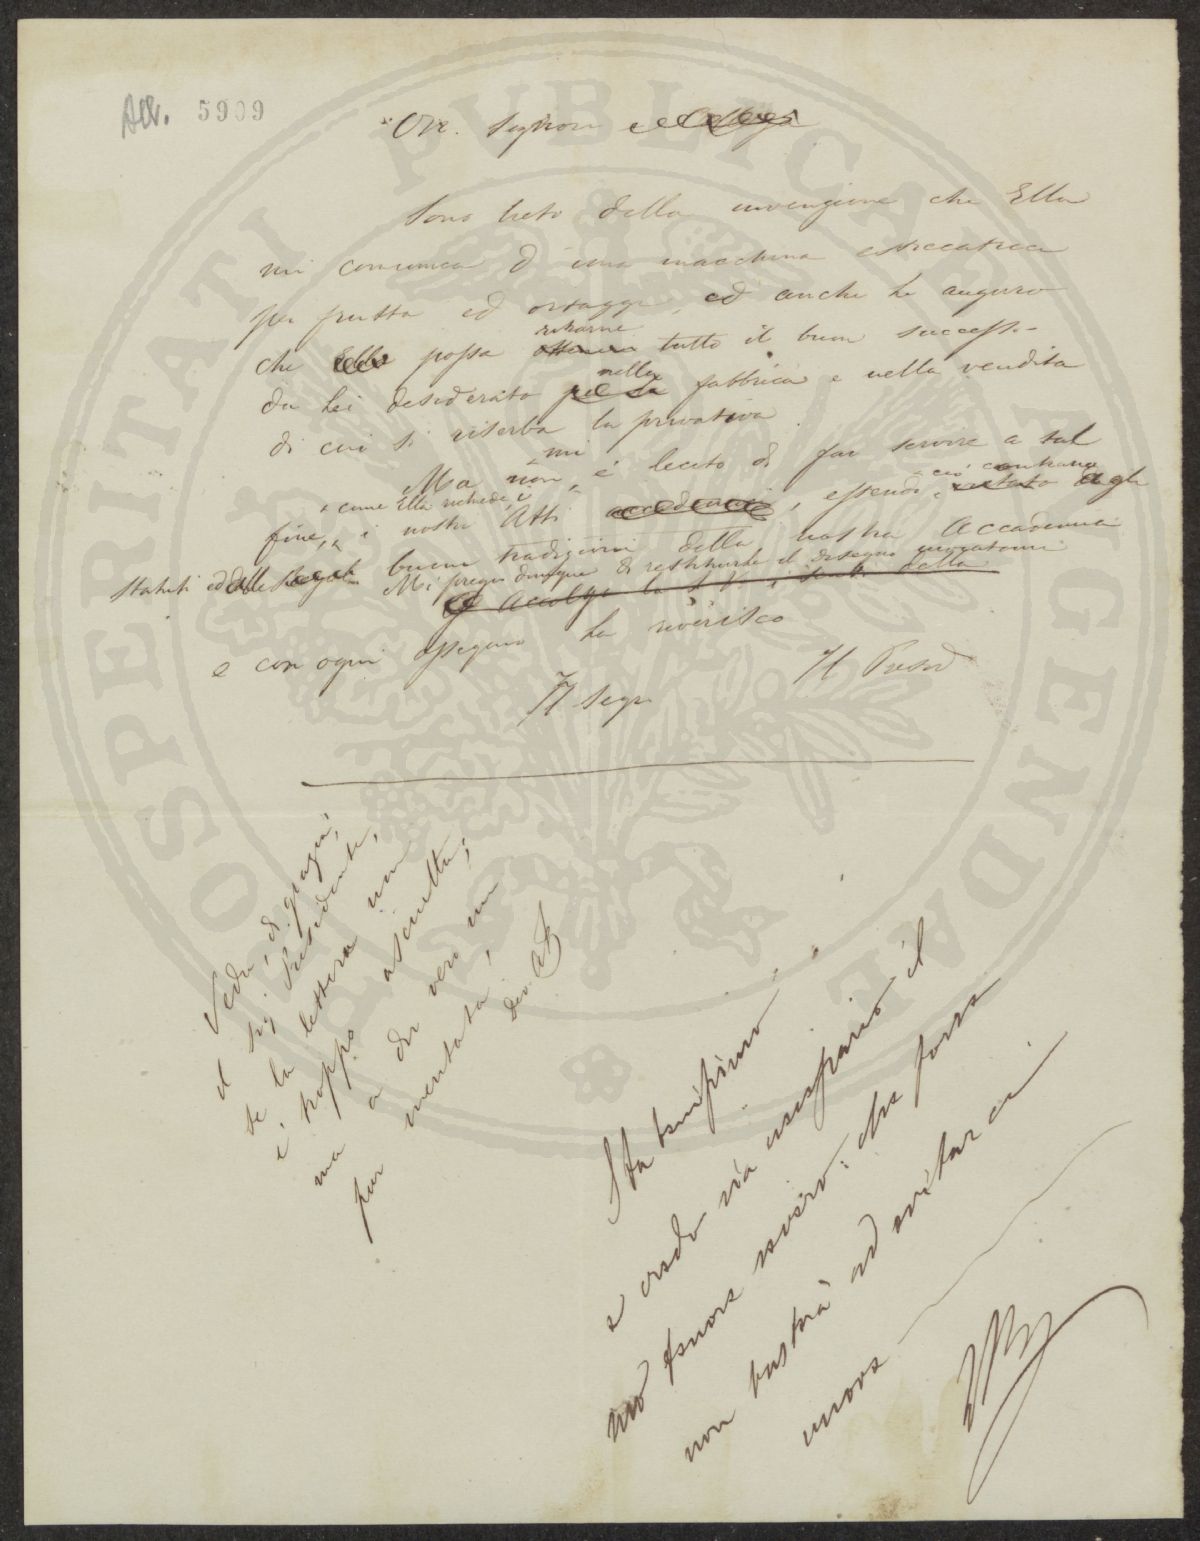 Acc. 5909
PROSPERITATI PUBLICAE AUGENDAE
On. Signore e Collega
Sono lieto della invenzione che Ella
mi comunica d'una macchina essiccatrice
per frutta ed ortaggi, ed anche le auguro
che Ella possa ottenere ritrarne tutto il buon successo
da Lei desiderato per la nella fabbrica e nella vendita
di cui si riserba la privativa.
Ma non mi è lecito di far servire a tal
fine, come Ella richiede, i nostri Atti accademici, essendo ciò contrario vietato agli
statuti ed alle buone tradizioni della nostra Accademia
Mi pregio dunque di restituirle il disegno inviatomi
Accolga la S. V. i sensi della
e con ogni ossequio La riverisco
Il Segr. Il Presid
Veda, di grazia,
il Sig. Presidente,
se la lettera non
è troppo asciutta;
ma a dir vero un
pur meritata,
dev.
Sta benissimo
e credo sia necessario il
tenore severo: che forse
non basterà ad evitarci
nuove